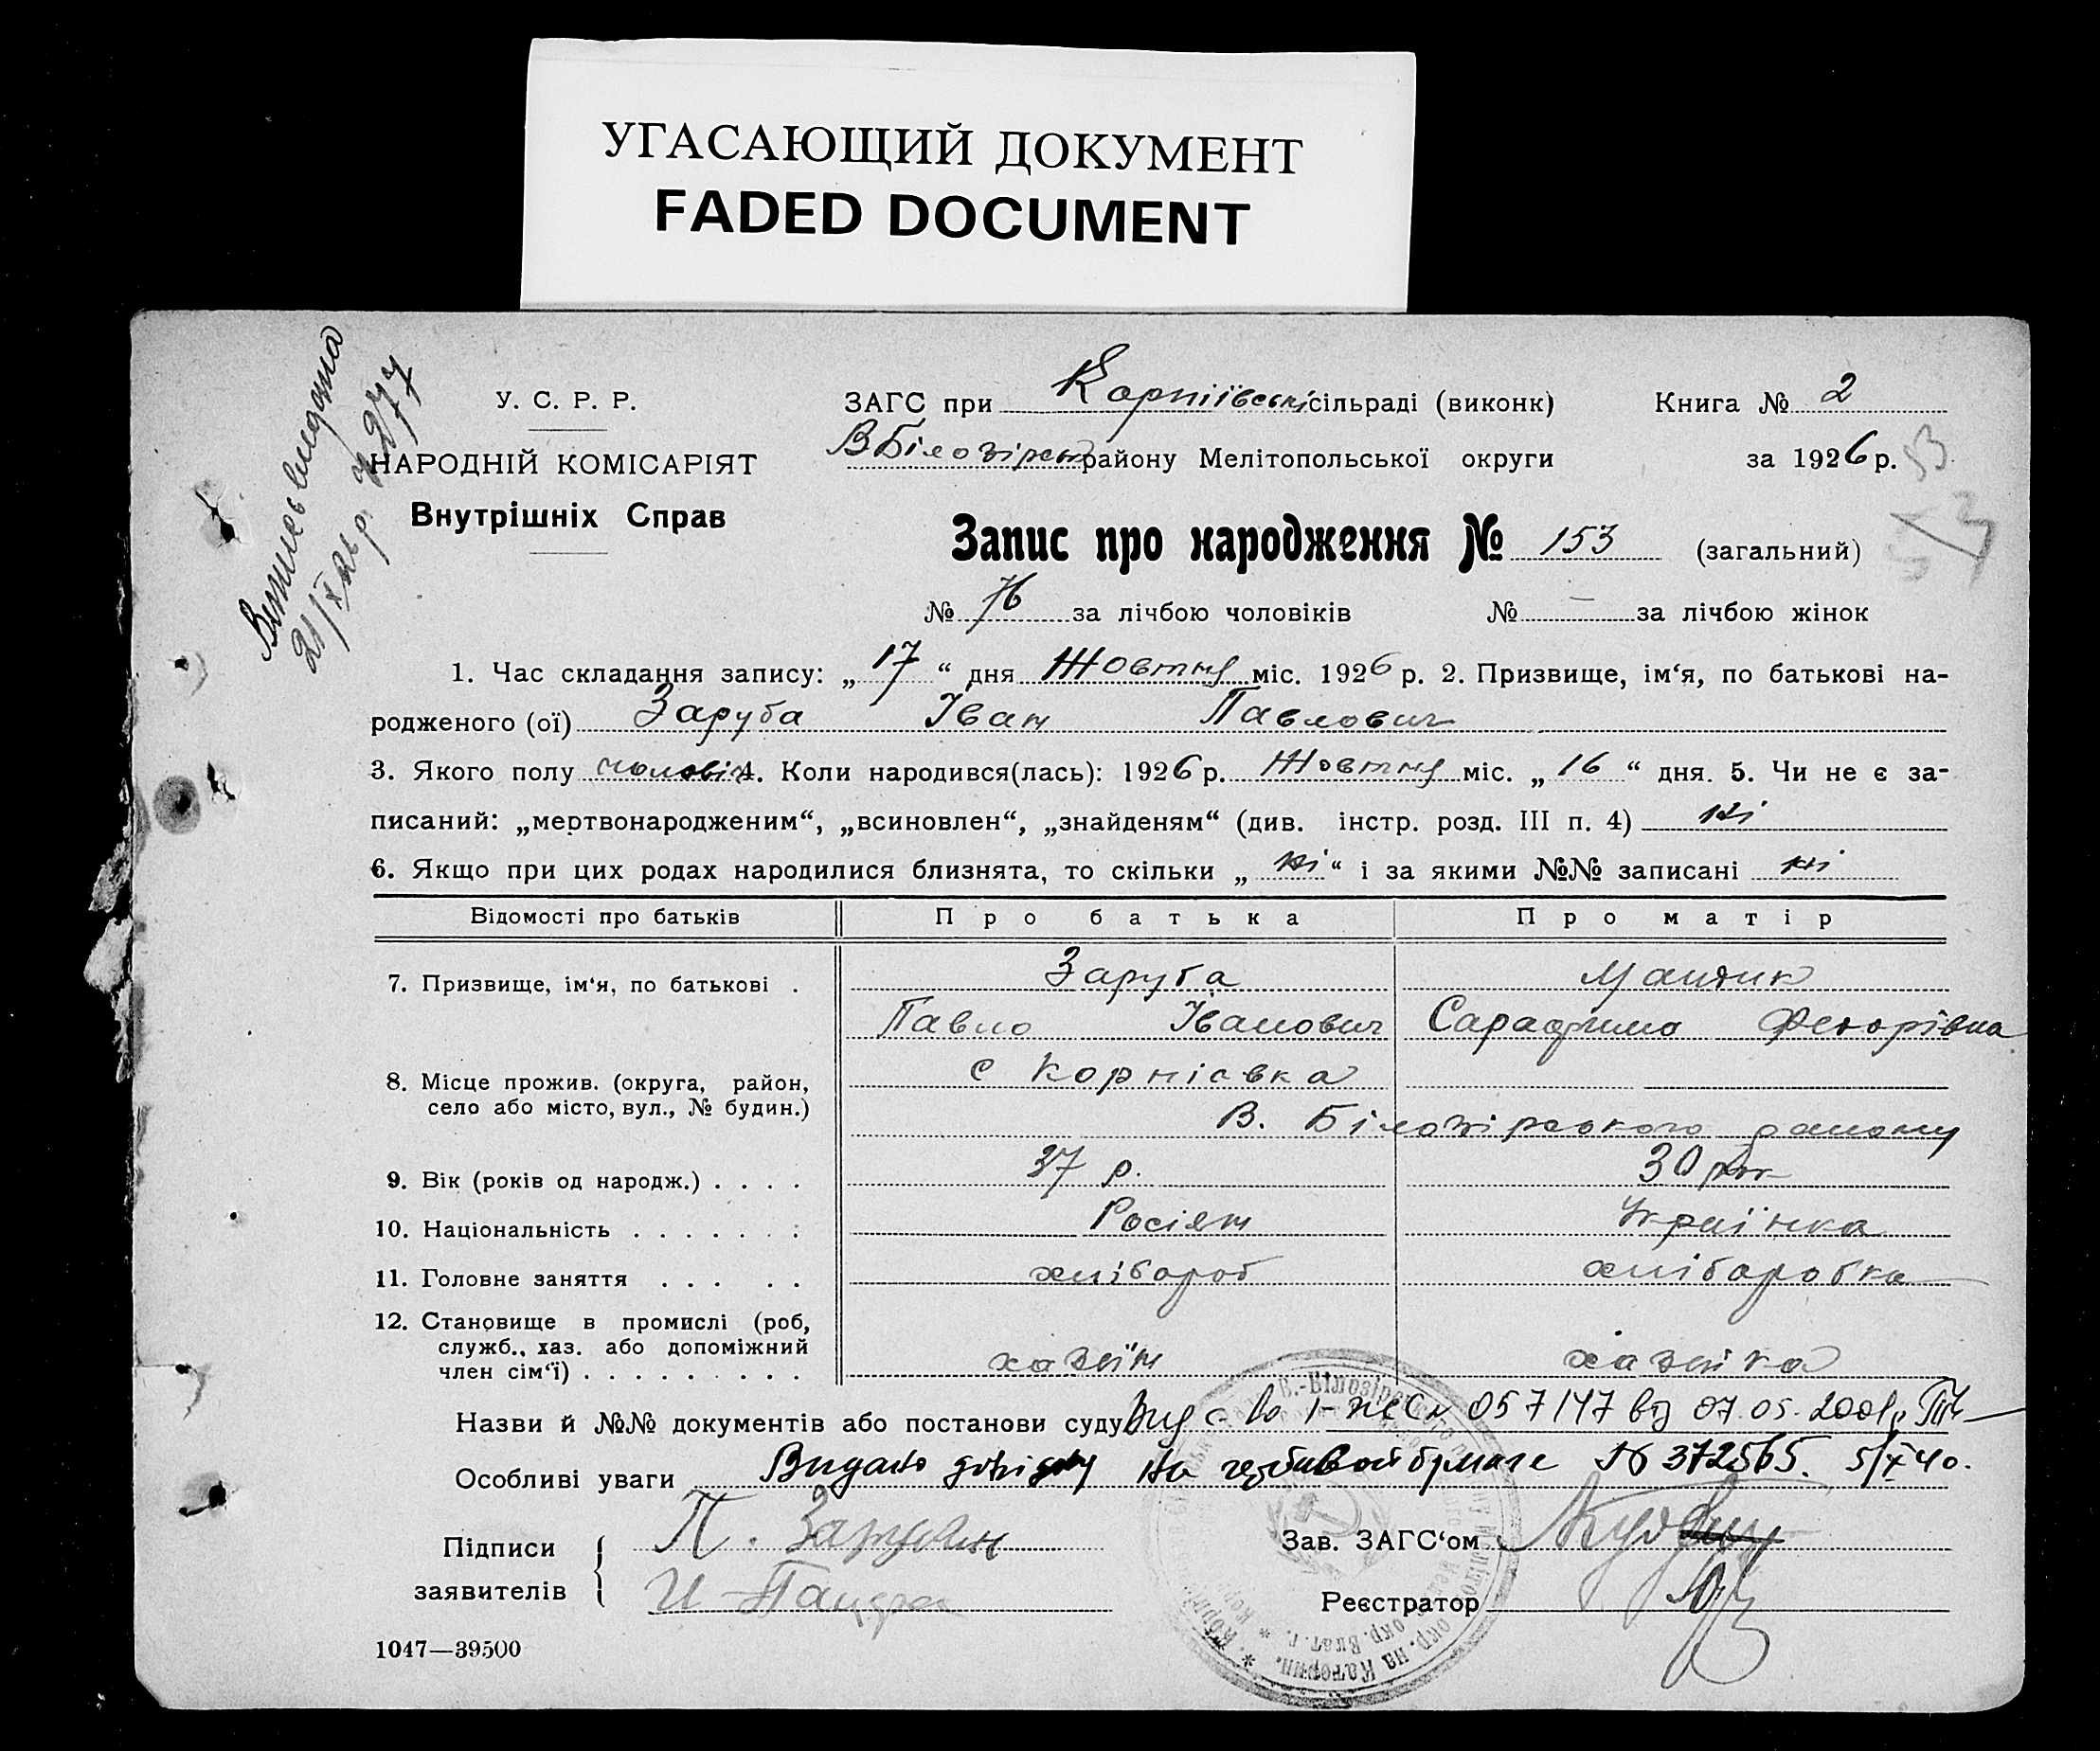 УГАСАЮЩИЙ ДОКУМЕНТ
FADED DOCUMENT
Випись видана
21/X 26 р. № 277
У. С. Р. Р.
НАРОДНІЙ КОМІСАРІЯТ
Внутрішніх Справ
ЗАГС при Корніївські сільраді (виконк)
Книга № 2
В Білозірськ району Мелітопольської округи
за 1926 р.
53
Запис про народження № 153 (загальний)
№ 76 за лічбою чоловіків № — за лічбою жінок
1. Час складання запису: „ 17 “ дня Жовтня міс. 1926 р. 2. Призвище, ім‘я, по батькові на-
родженого (ої) Заруба Іван Павлович
3. Якого полу чоловіч 4. Коли народився(лась): 1926 р. Жовтня міс. „ 16 “ дня. 5. Чи не є за-
писаний: „мертвонародженим“, „всиновлен“, „знайденям“ (див. інстр. розд. III п. 4) ні
6. Якщо при цих родах народилися близнята, то скільки „ ні “ і за якими №№ записані ні
Відомості про батьків Про батька Про матір
7. Призвище, ім‘я, по батькові . Заруба
Павло Іванович Сарафима Федорівна
8. Місце прожив. (округа, район,
село або місто, вул., № будин.)
с Корніовка
В. Білозірського району
9. Вік (років од народж.) . . . . 37 р. 30 рок
10. Національність . . . . . . : Росіян Українка
11. Головне заняття . . . . . хлібороб хліборобка
12. Становище в промислі (роб,
служб., хаз. або допоміжний
член сім‘ї) . . . . . . . . .
хазяїн хазяїка
Назви й №№ документів або постанови суду 057147 від 07.05.2001
Особливі уваги Видано довідку на гербивой бумаге № 372565. 5/X 40.
Підписи
заявителів
П. Зарубин
И
Зав. ЗАГС‘ом
Реєстратор
1047—39500